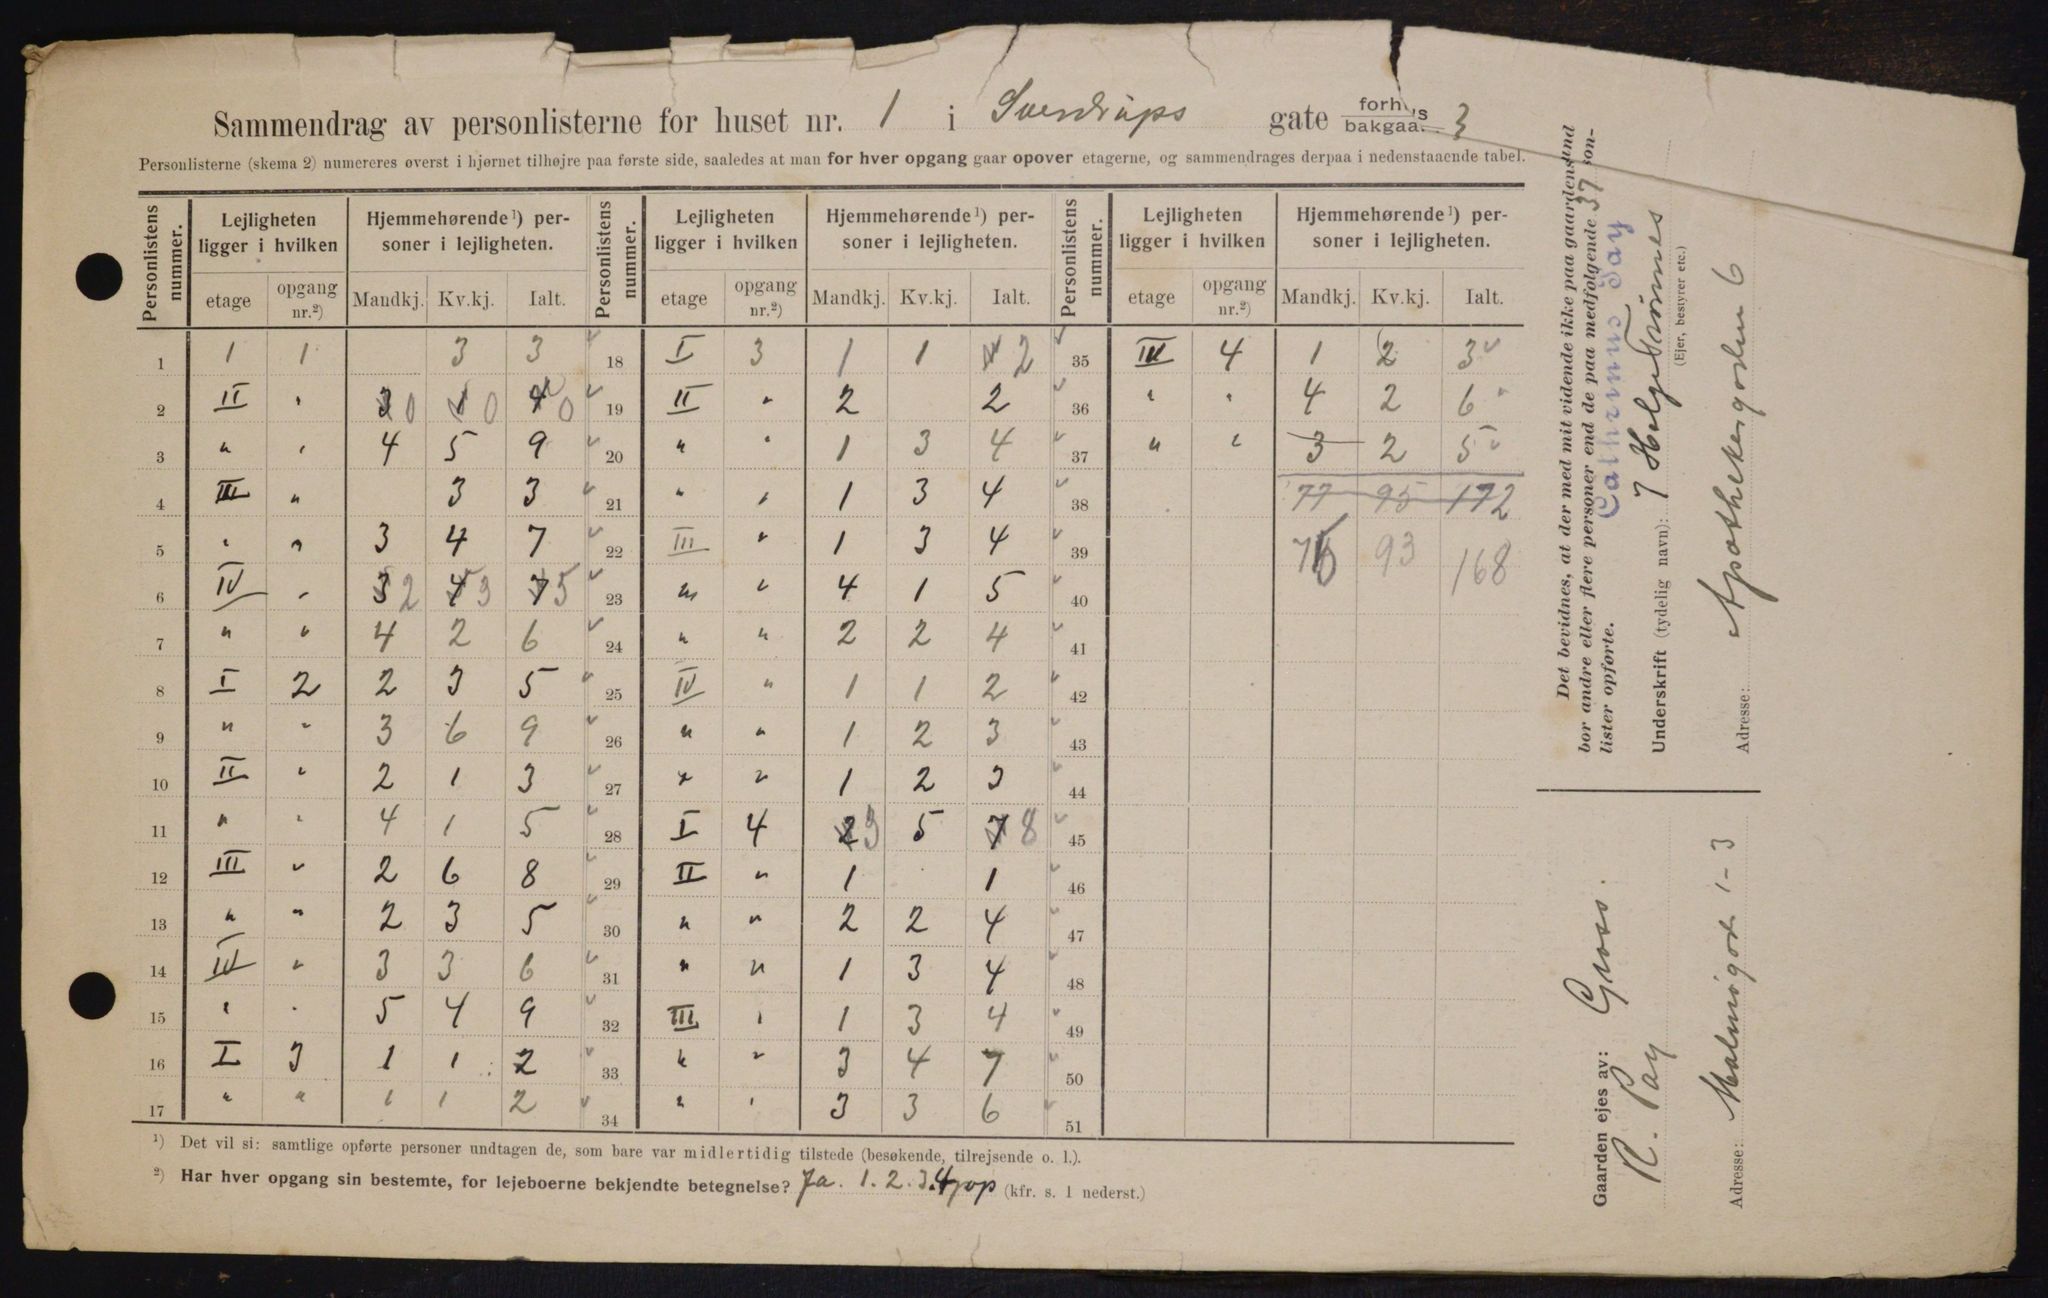 Sammendrag av personlisterne for huset nr. 1 i Sverdrups gate forhus
bakgaa. 3
Personlisterne (skema 2) numereres øverst i hjørnet tilhøjre paa første side, saaledes at man for hver opgang gaar opover etagerne, og sammendrages derpaa i nedenstaaende tabel.
Personlistens nummer. Lejligheten ligger i hvilken Hjemmehørende¹) personer i lejligheten. Personlistens nummer. Lejligheten ligger i hvilken Hjemmehørende¹) personer i lejligheten. Personlistens nummer. Lejligheten ligger i hvilken Hjemmehørende¹) personer i lejligheten.
etage opgang nr.²) Mandkj. Kv.kj. Ialt. etage opgang nr.²) Mandkj. Kv.kj. Ialt. etage opgang nr.²) Mandkj. Kv.kj. Ialt.
1 1 1 3 3 18 I 3 1 1 4 2 35 III 4 1 2 3
2 II " 3 0 1 0 4 0 19 II " 2 2 36 " " 4 2 6
3 " " 4 5 9 20 " " 1 3 4 37 " " 3 2 5
4 III " 3 3 21 " " 1 3 4 38 77 95 172
5 " " 3 4 7 22 III " 1 3 4 39 75 93 168
6 IV " 3 2 4 3 7 5 23 " " 4 1 5 40
7 " " 4 2 6 24 " " 2 2 4 41
8 I 2 2 3 5 25 IV " 1 1 2 42
9 " " 3 6 9 26 " " 1 2 3 43
10 II " 2 1 3 27 " " 1 2 3 44
11 " " 4 1 5 28 I 4 2 3 5 7 8 45
12 III " 2 6 8 29 II " 1 1 46
13 " " 2 3 5 30 " " 2 2 4 47
14 IV " 3 3 6 31 " " 1 3 4 48
15 " " 5 4 9 32 III " 1 3 4 49
16 I 3 1 1 2 33 " " 3 4 7 50
17 " " 1 1 2 34 " " 3 3 6 51
¹) Det vil si: samtlige opførte personer undtagen de, som bare var midlertidig tilstede (besøkende, tilrejsende o. l.).
²) Har hver opgang sin bestemte, for lejeboerne bekjendte betegnelse? Ja. 1. 2. 3. 4 (kfr. s. 1 nederst.)
Det bevidnes, at der med mit vidende ikke paa gaardens
bor andre eller flere personer end de paa medfølgende 37
lister opførte.
Underskrift (tydelig navn):
(Ejer, bestyrer etc.)
Adresse: Apothekergaden 6
Gaarden ejes av:
R. Pay
Adresse: Malmøgat 1-3